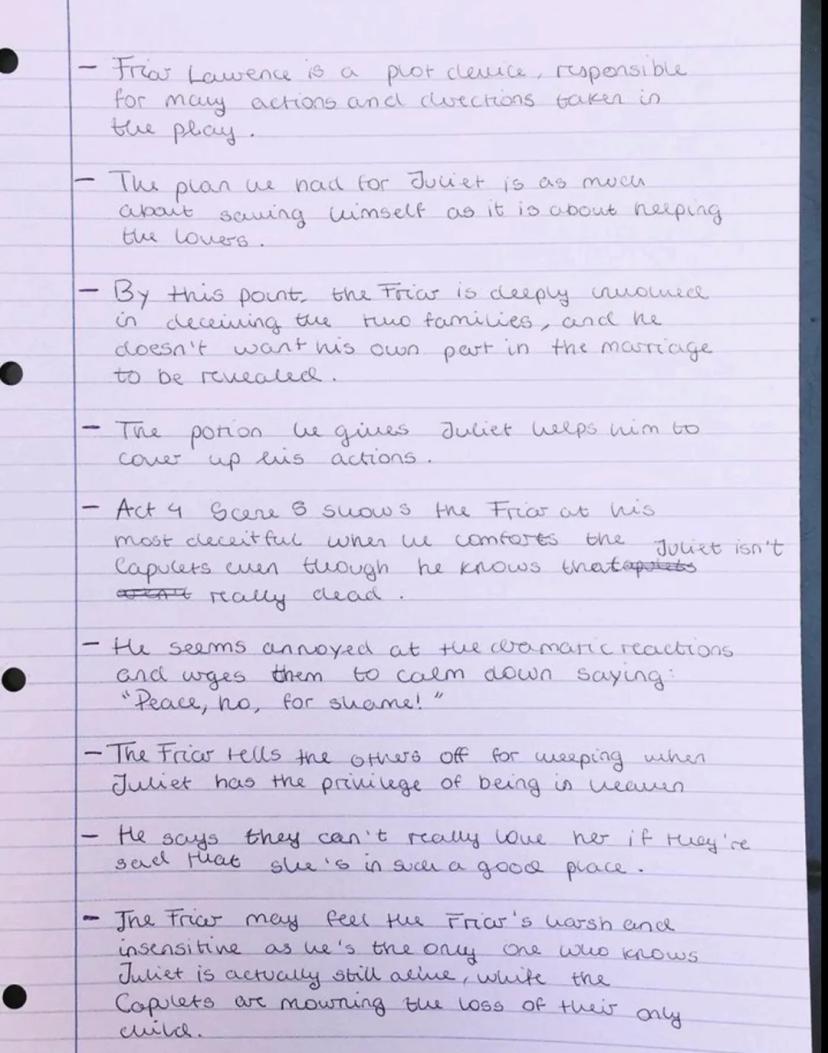 - Friar Lawrence is a plot device, responsible
for many actions and directions taken in
the play.
- The plan he had for Juliet is as much
about saving himself as it is about helping
the lovers.
- By this point, the Friar is deeply involved
in deceiving the two families, and he
doesn't want his own part in the marriage
to be revealed.
- The potion he gives Juliet helps him to
cover up his actions.
- Act 4 Scene 5 shows the Friar at his
most deceitful when he comforts the
Capulets even though he knows that Juliet isn't
really dead.
- He seems annoyed at the dramatic reactions
and urges them to calm down saying:
"Peace, ho, for shame!"
- The Friar tells the others off for weeping when
Juliet has the privilege of being in heaven
- He says they can't really love her if they're
sad that she's in such a good place.
- The Friar may feel the Friar's harsh and
insensitive as he's the only one who knows
Juliet is actually still alive, while the
Capulets are mourning the loss of their only
child.